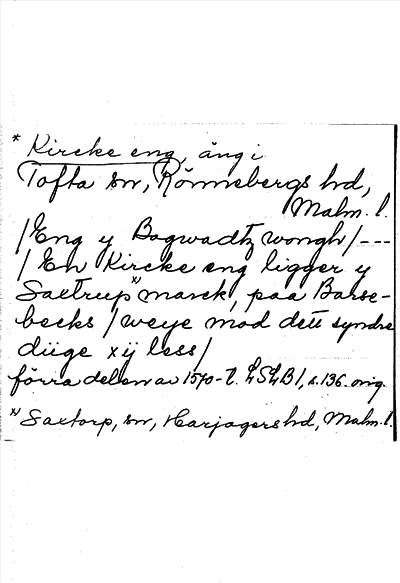 * Kircke eng, äng i
Tofta sn, Rönnebergs hd,
Malm. l.
/Eng y Bagwadtz wongh/---
/ En Kircke eng ligger y
Saxtrup x) marck, paa Barse-
becks / weye mod dett syndre
diige xij less/
förra delen av 1570-t. LSLB 1, s. 136. orig.
x) Saxtorp, sn, Harjagers hd, Malm. l.